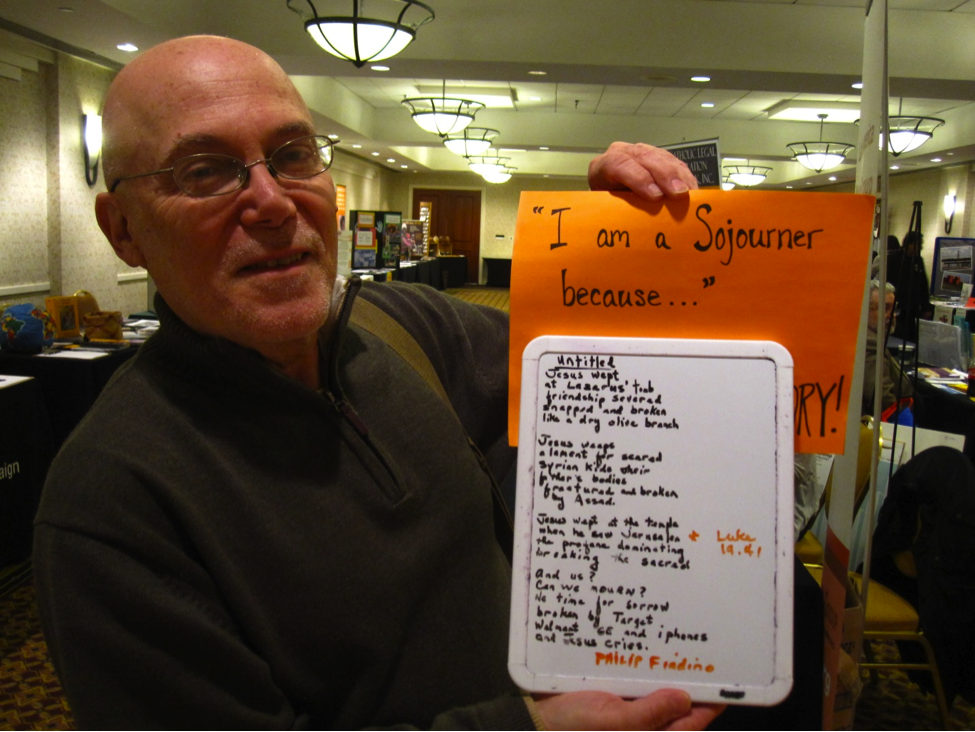 OLIC LEGAL
ATION
, INC
"I am a Sojourner
because..."
ORY!
Untitled
Jesus wept
at Lazarus' tomb
friendship severed
snapped and broken
like a dry olive branch
Jesus weeps
a lament for scared
Syrian kids their
father's bodies
fractured and broken
by Assad.
Jesus wept at the temple
when he saw Jerusalem * Luke
the profane dominating 19.41
breaking the sacred
And us?
Can we mourn?
No time for sorrow
broken by Target
Walmart GE and iphones
and Jesus cries.
PHILIP Fiadino
aign